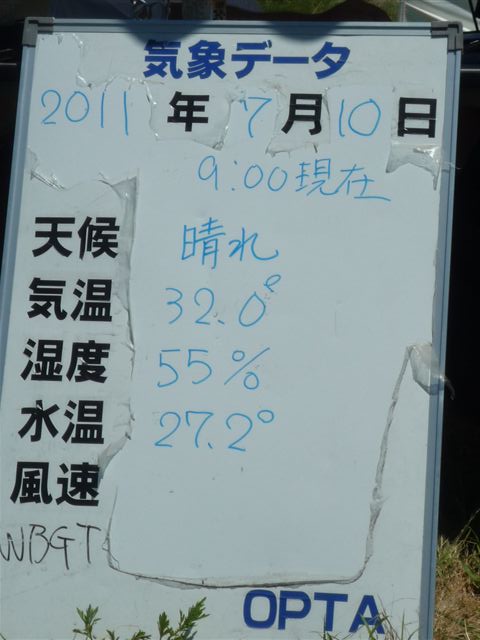 気象データ
2011年7月10日
9:00現在
天候 晴れ
気温 32.0°
湿度 55%
水温 27.2°
風速
WBGT
OPTA